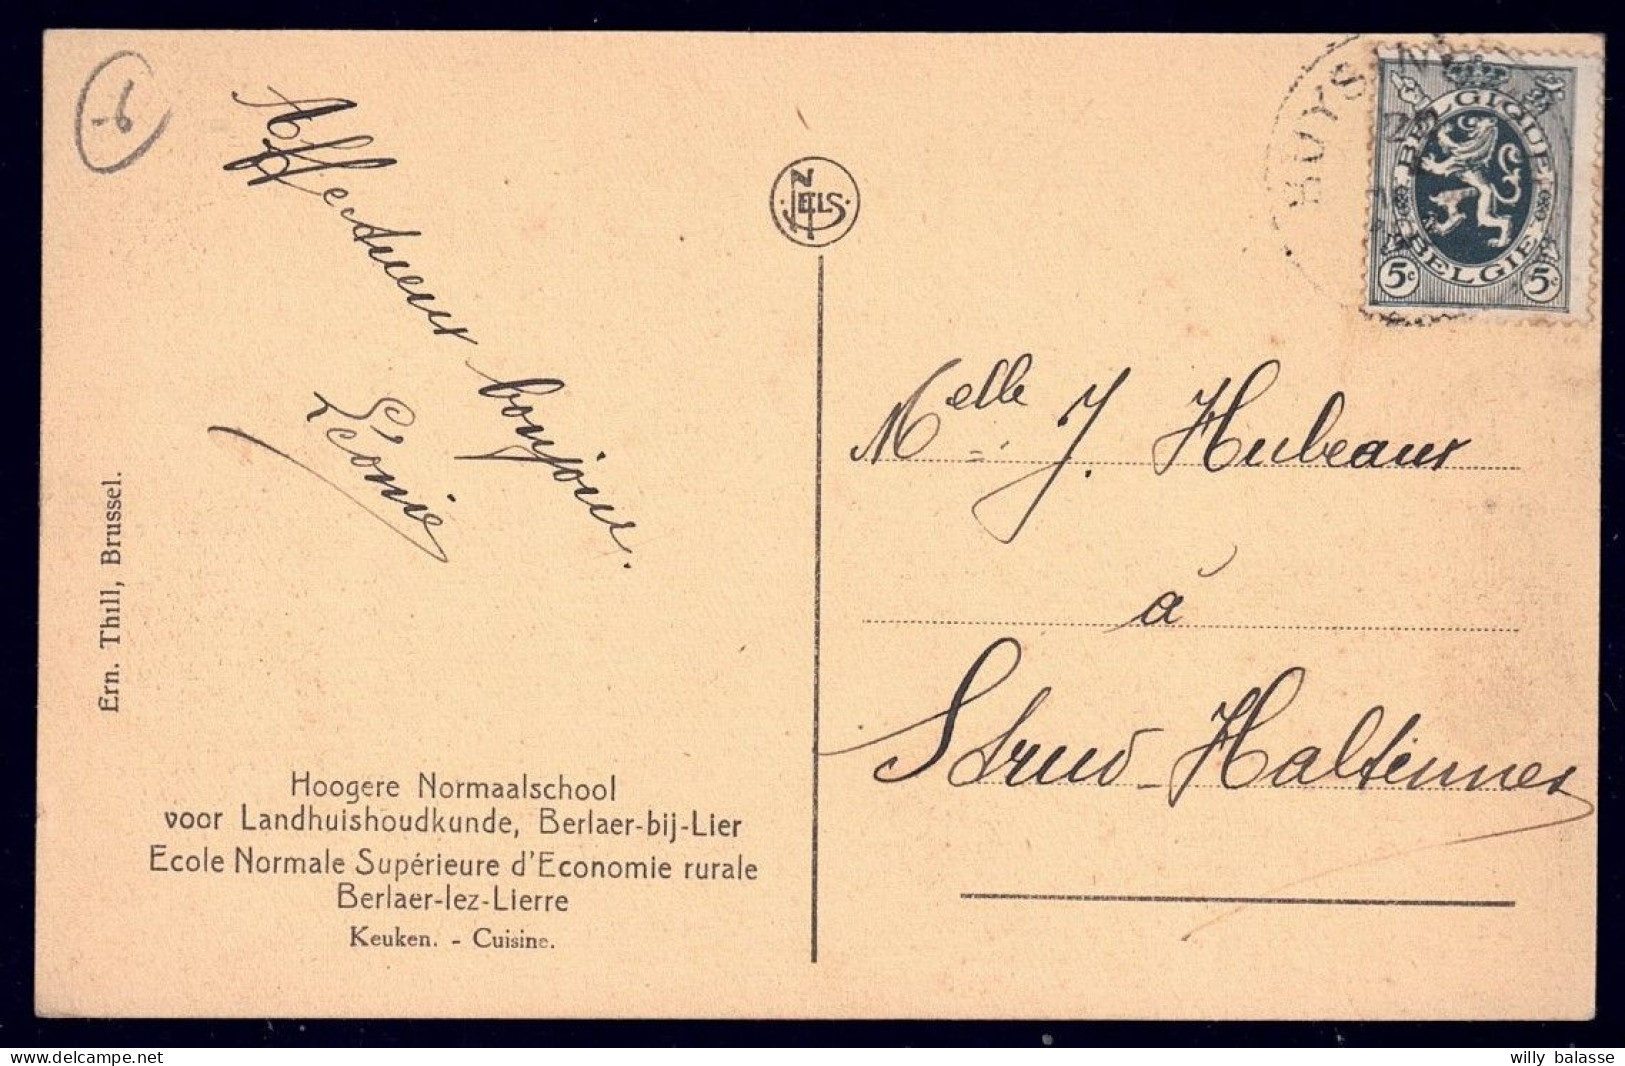 -6
Affectueux bonjour.
Léonie
NELS
Ern. Thill, Brussel.
Hoogere Normaalschool
voor Landhuishoudkunde, Berlaer-bij-Lier
Ecole Normale Supérieure d'Economie rurale
Berlaer-lez-Lierre
Keuken. - Cuisine.
BELGIQUE
BELGIE
5c 5c
Melle J. Hubeaux
à
Strud-Haltinnes
delcampe.net
willy balasse